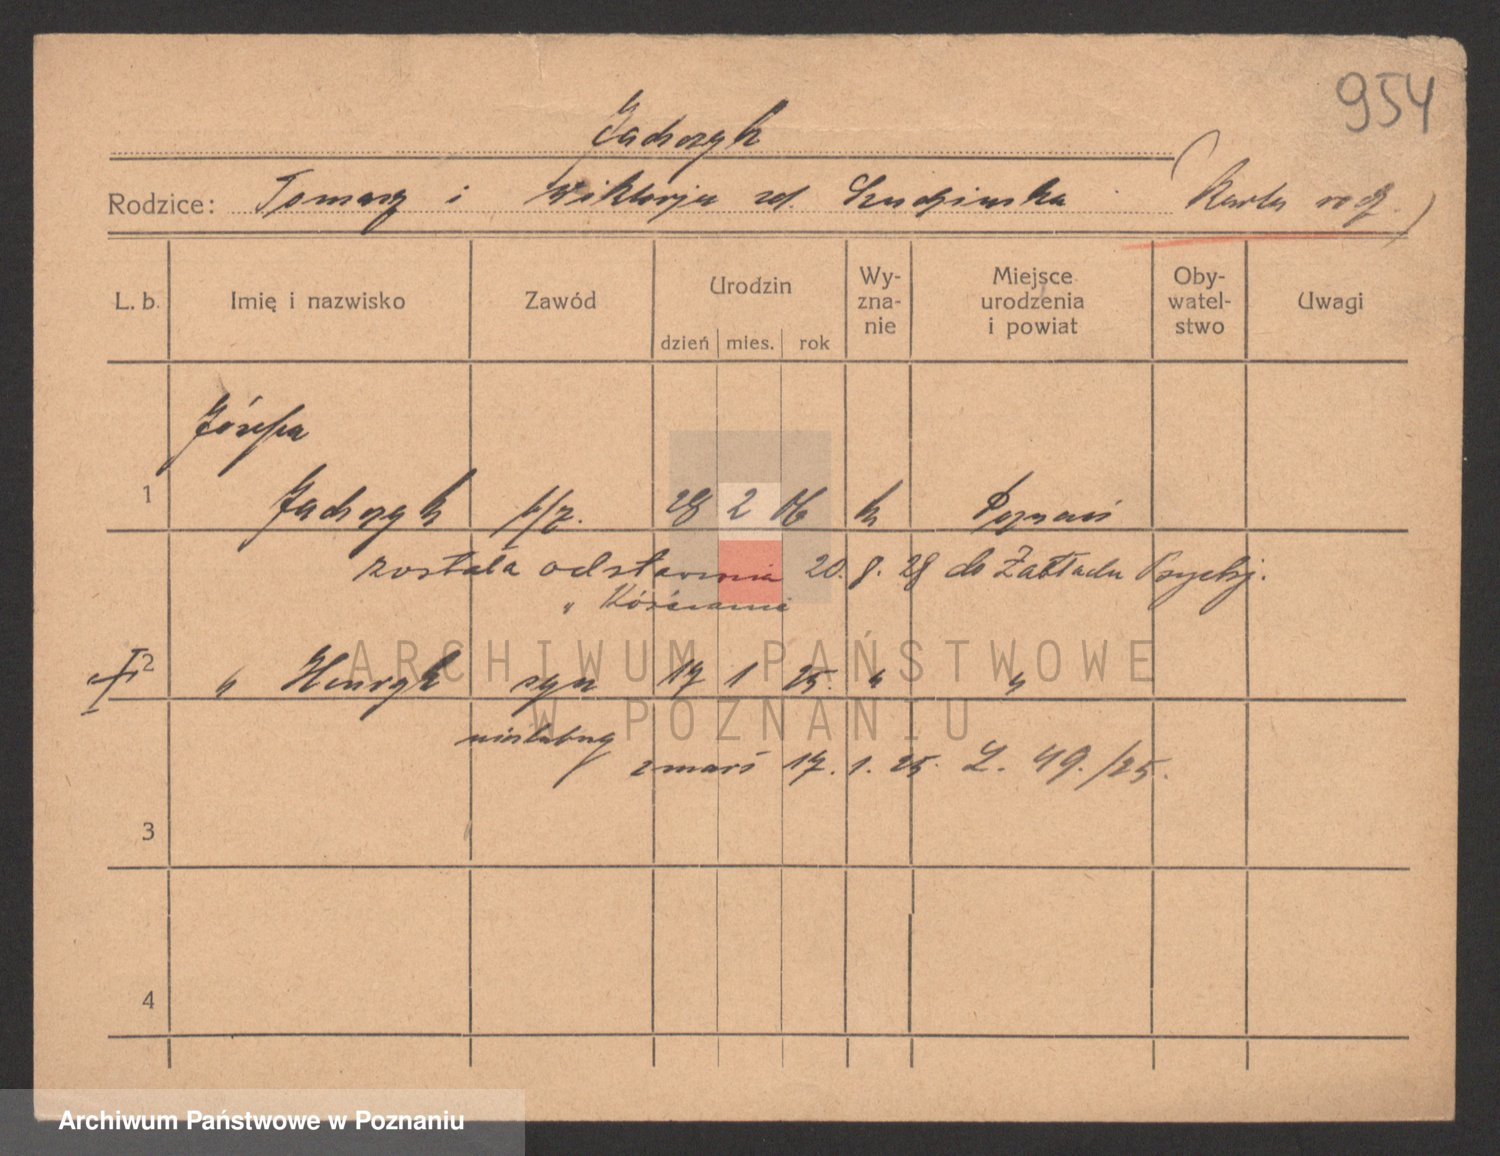 954
Jachczyk
Rodzice: Tomasz i Wiktorja zd. (Karta rodz.)
L. b. Imię i nazwisko Zawód Urodzin dzień mies. rok Wy-zna-nie Miejsce urodzenia i powiat Oby-watel-stwo Uwagi
Józefa
1 28 2 06 k Poznań
została odstawiona 20. 8. 28 do Zakładu Psychj.
" Kościanie
2 " Henryk syn 17 1 25. " "
nieślubny
zmarł 17. 1. 25. L. 49./25.
3
4
ARCHIWUM PAŃSTWOWE
W POZNANIU
Archiwum Państwowe w Poznaniu